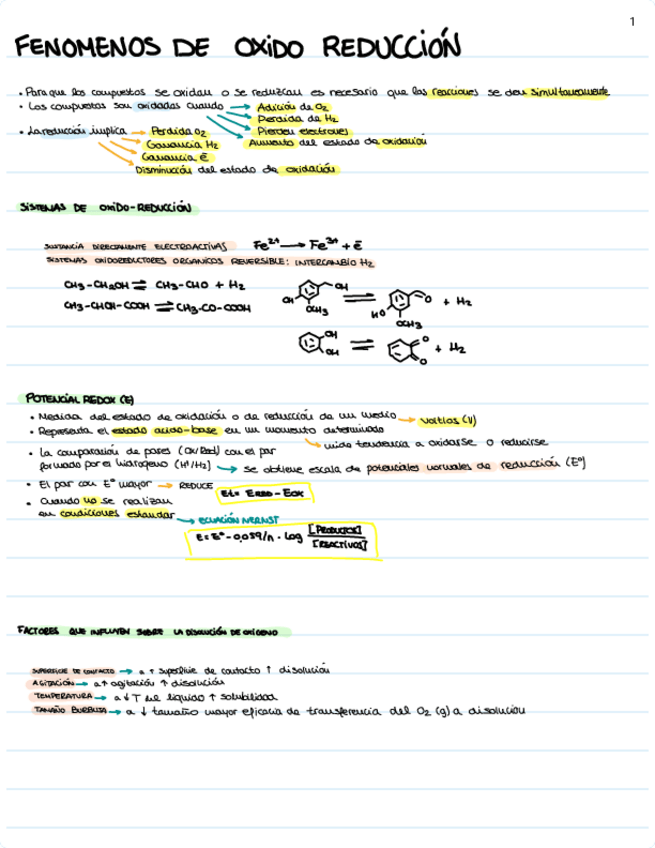 1
FENOMENOS DE OXIDO REDUCCIÓN
• Para que los compuestos se oxidan o se reduzcan es necesario que las reacciones se den simultaneamente
• Los compuestos son oxidados cuando → Adición de O2
Perdida de H2
• La reducción implica → Perdida O2 Pierden electrones
Ganancia H2 Aumento del estado de oxidación
Ganancia ē
Disminución del estado de oxidación
SISTEMAS DE OXIDO-REDUCCIÓN
SUSTANCIA DIRECTAMENTE ELECTROACTIVAS Fe2+ → Fe3+ + ē
SISTEMAS OXIDOREDUCTORES ORGANICOS REVERSIBLE: INTERCAMBIO H2
CH3-CH2OH ⇌ CH3-CHO + H2
OH OH OCH3 ⇌ HO O OCH3 + H2
CH3-CHOH-COOH ⇌ CH3-CO-COOH
OH OH ⇌ O O + H2
POTENCIAL REDOX (E)
• Medida del estado de oxidación o de reducción de un medio → voltios (V)
• Representa el estado acido-base en un momento determinado
→ mide tendencia a oxidarse o reducirse
• La comparación de pares (Ox/Red) con el par
formado por el hidrogeno (H+/H2) → se obtiene escala de potenciales normales de reducción (E°)
• El par con E° mayor → REDUCE
• Cuando no se realizan Et = ERED - EOX
en condiciones estandar → ECUACIÓN NERNST
E = E° - 0,059/n · log [PRODUCTOS]
[REACTIVOS]
FACTORES QUE INFLUYEN SOBRE LA DISOLUCIÓN DE OXÍGENO
SUPERFICIE DE CONTACTO → a ↑ superficie de contacto ↑ disolución
AGITACIÓN → a ↑ agitación ↑ disolución
TEMPERATURA → a ↓ T del liquido ↑ solubilidad
TAMAÑO BURBUJA → a ↓ tamaño mayor eficacia de transferencia del O2 (g) a disolución